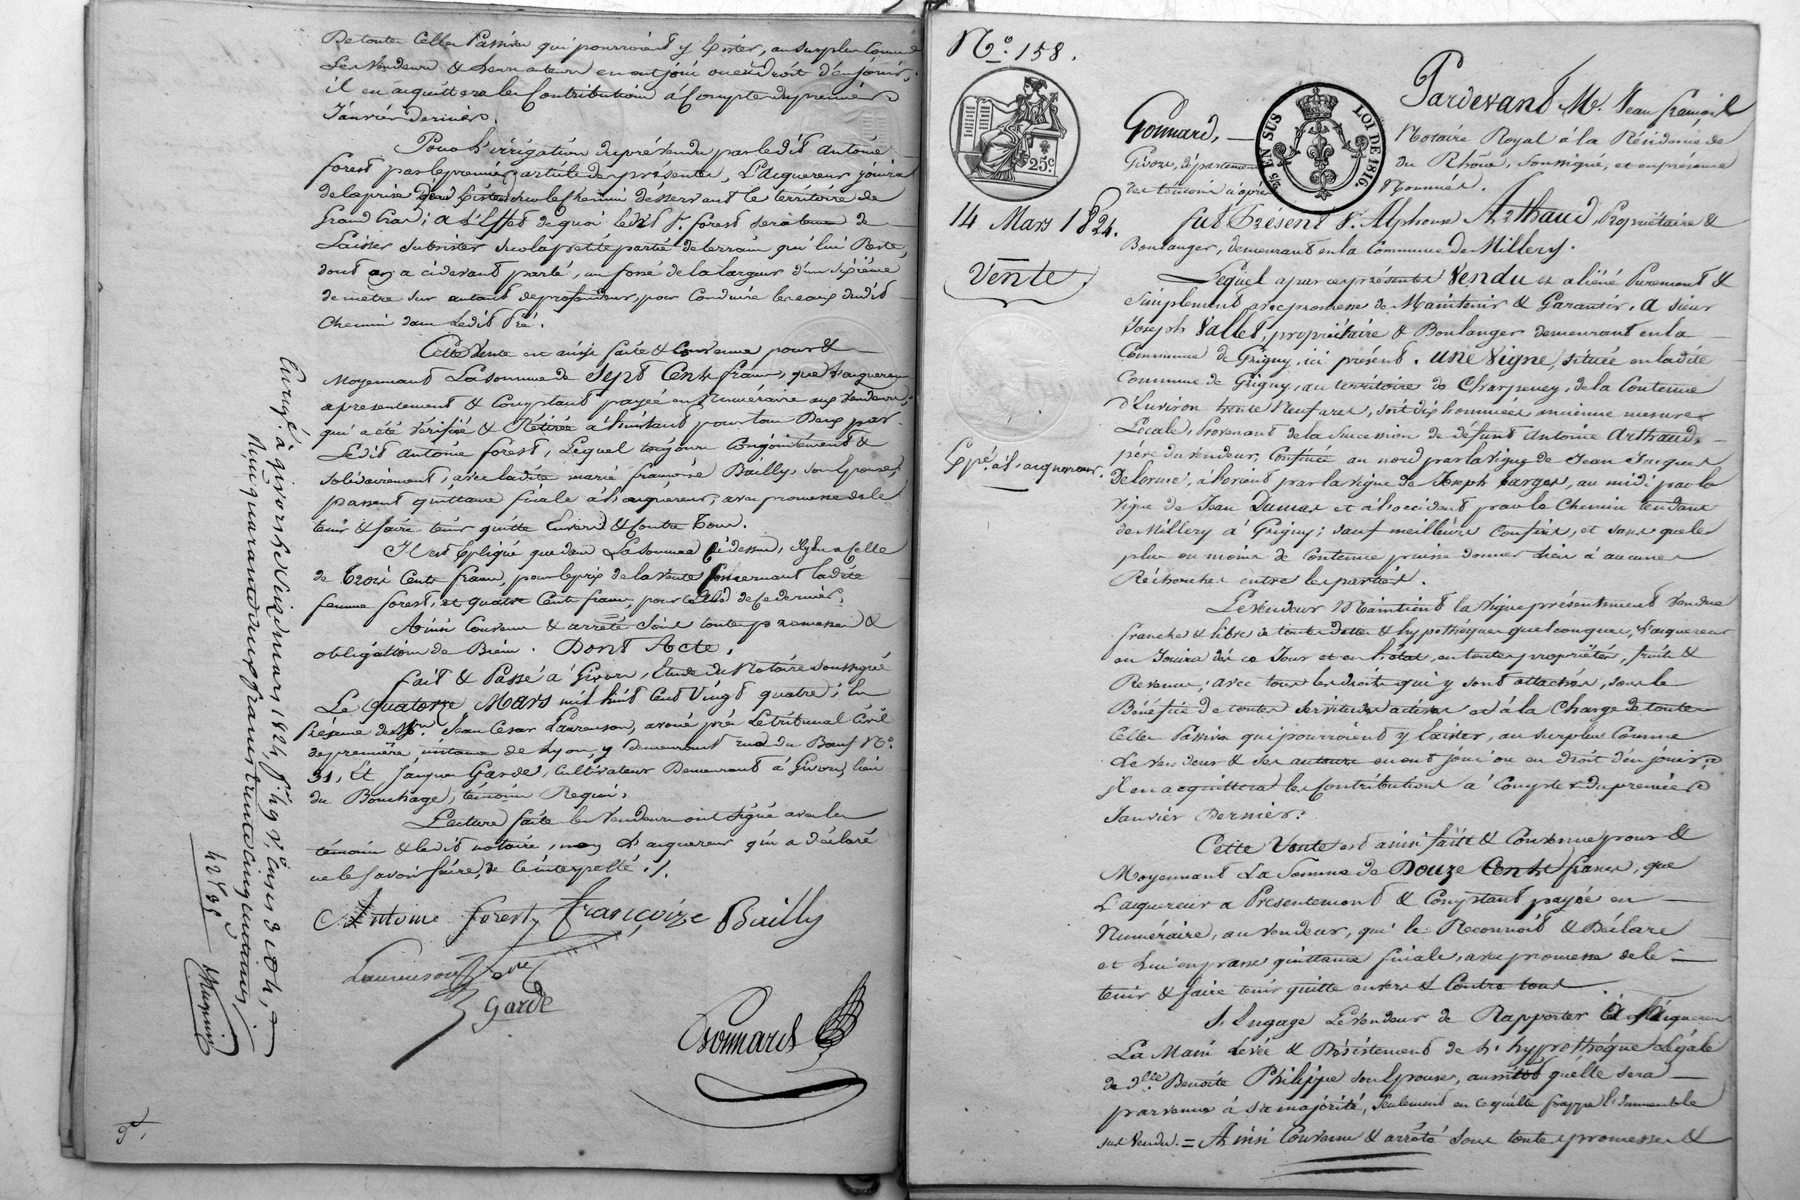 De toutes celles Passives qui pourroient y Exister, au surplus Comme
Les Vendeurs & leurs auteurs en ont joui ou eu Droit d'en jouir,
il en acquittera les Contributions à Compter du premier
Janvier dernier.
Pour l'irrigation du pré vendu par ledit antoine
forest par le premier article des présentes, L'acquereur jouira
de la prise D'eau Existante sur le Chemin desservant le territoire de
Grand Cras; a L'Effet de quoi ledit Sr. forest sera tenu de
Laisser subsister sur la petite partie de terrain qui lui Reste,
dont on a cidevant parlé, un fossé de la largeur d'un sixième
de metre sur autant de profondeur, pour Conduire les eaux dudit
Chemin dans Ledit Pré.
Cette Vente est ainsi faite & Convenue pour &
Moyennant La somme de Sept Cents francs, que l'acquereur
a presentement & Comptant payée en Numéraire aux Vendeurs,
qui a été Vérifiée & Retirée à l'instant pour tous Deux par
Ledit antoine forest, Lequel toujours Conjointement &
solidairement, avec ladite marie françoise Bailly, son Epouse,
passent quittance finale à l'acquereur, avec promesse de le
tenir & faire tenir quitte Envers & Contre Tous.
Il est Expliqué que dans La somme Ci dessus, il y en a Celle
de Trois Cents francs, pour le prix de la Vente Concernant ladite
femme forest, et quatre Cents francs, pour celle de Ce dernier.
Ainsi Convenu & arrêté sous toutes promesses &
obligations de Biens. Dont Acte,
fait & Passé à Givors, Etude du Notaire soussigné
Le quatorze Mars mil huit Cent Vingt quatre; En
Présence de Mr. Jean Cesar Laurenson, avoué près Le tribunal Civil
de première instance de Lyon, y demeurant rue du Bœuf No.
31, Et Jacques Garde, Cultivateur Demeurant à Givors, lieu
du Bouchage, témoins Requis.
Lecture faite les Vendeurs ont Signé avec les
témoins & ledit notaire, non L'acquereur qui a déclaré
ne le savoir faire, de ce interpellé ./.
Antoine forest françoize Bailly
Laurenson
Garde
Gonnard
Enregé. à givors le seize mars 1824, fo. 49 vo. Cases 3 et 4,
Reçu quarante deux francs trente cinq centimes,
42f 35c
N.o 158.
25c.
5/5 EN SUS
LOI DE 1816.
14 Mars 1824.
Vente
Expé. à l'acquereur.
Pardevant Me. Jean françois
Gonnard, Notaire Royal à la Résidence de
Givors, département du Rhône, soussigné, et en présence
des temoins ci après Nommés.
fut Présent Sr. Alphonse Arthaud, Propriétaire &
Boulanger, demeurant en la Commune de Millery.
Lequel a par ces présentes Vendu et aliéné Purement &
Simplement avec promesse de Maintenir & Garantir, a sieur
Joseph Vallet, propriétaire & Boulanger demeurant en la
Commune de Grigny, ici présent. une Vigne, située en ladite
Commune de Grigny, au territoire de Charpeney, de la Contenue
D'Environ trente Neuf ares, soit dix hommées ancienne mesure
Locale, Provenant de la Succession de défunt Antoine Arthaud,
père du vendeur, Confinée au nord par la Vigne de Jean Jacques
Delorme, à l'orient par la Vigne de Joseph Farges, au midi par la
Vigne de Jean Dumas et à l'occident par le Chemin tendant
de Millery à Grigny; sauf meilleurs Confins, et sans que le
plus ou moins de Contenue puisse donner lieu à aucunes
Récherches entre les parties.
Le Vendeur Maintient la Vigne présentement Vendue
franche & libre de toutes dettes & hypothèques quelconques, L'acquereur
en Jouira dès ce Jour et en l'état, en toute propriété, fruits &
Revenus, avec tous les droits qui y sont attachés, sous le
Bénéfice de toutes servitudes actives et à la Charge de toutes
Celles Passives qui pourroient y Exister, au surplus Comme
Le vendeur & ses auteurs en ont joui ou eu droit d'en jouir;
il en acquittera les Contributions à Compter du premier
Janvier Dernier.
Cette Vente est ainsi faite & Convenue pour &
Moyennant La Somme de Douze Cents francs, que
L'acquereur a Présentement & Comptant payée en
Numéraire, au vendeur, qui le Reconnoit & Déclare
et Lui en passe quittance finale, avec promesse de le
tenir & faire tenir quitte envers & Contre tous.
S'Engage Le vendeur de Rapporter à l'acquereur
La Main Levée & Désistement de l'hypothèque Légale
de De. Benoite Philippe son Epouse, aussitôt qu'elle sera
parvenue à sa majorité, seulement en ce qu'elle frappe l'immeuble
sus vendu. = Ainsi Convenu & arrêté sous toutes promesses &